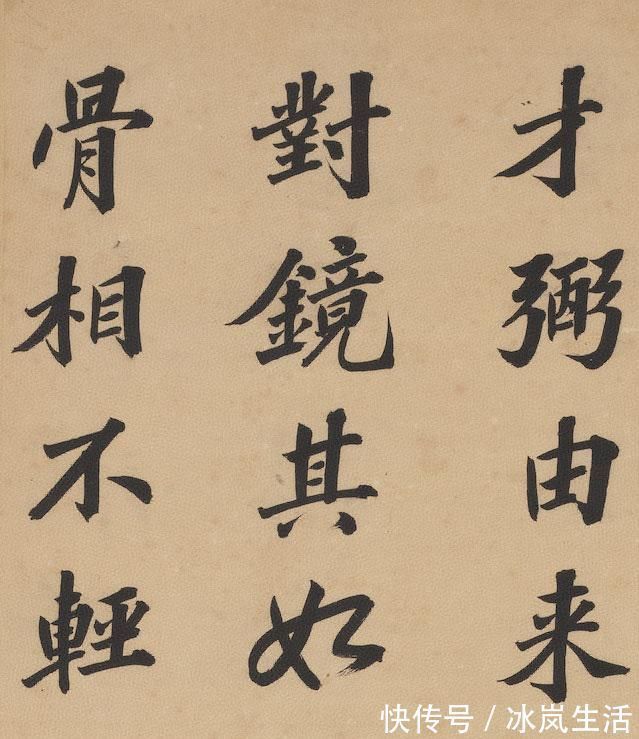 才弼由来
對鏡其如
骨相不輕
快传号／冰岚生活